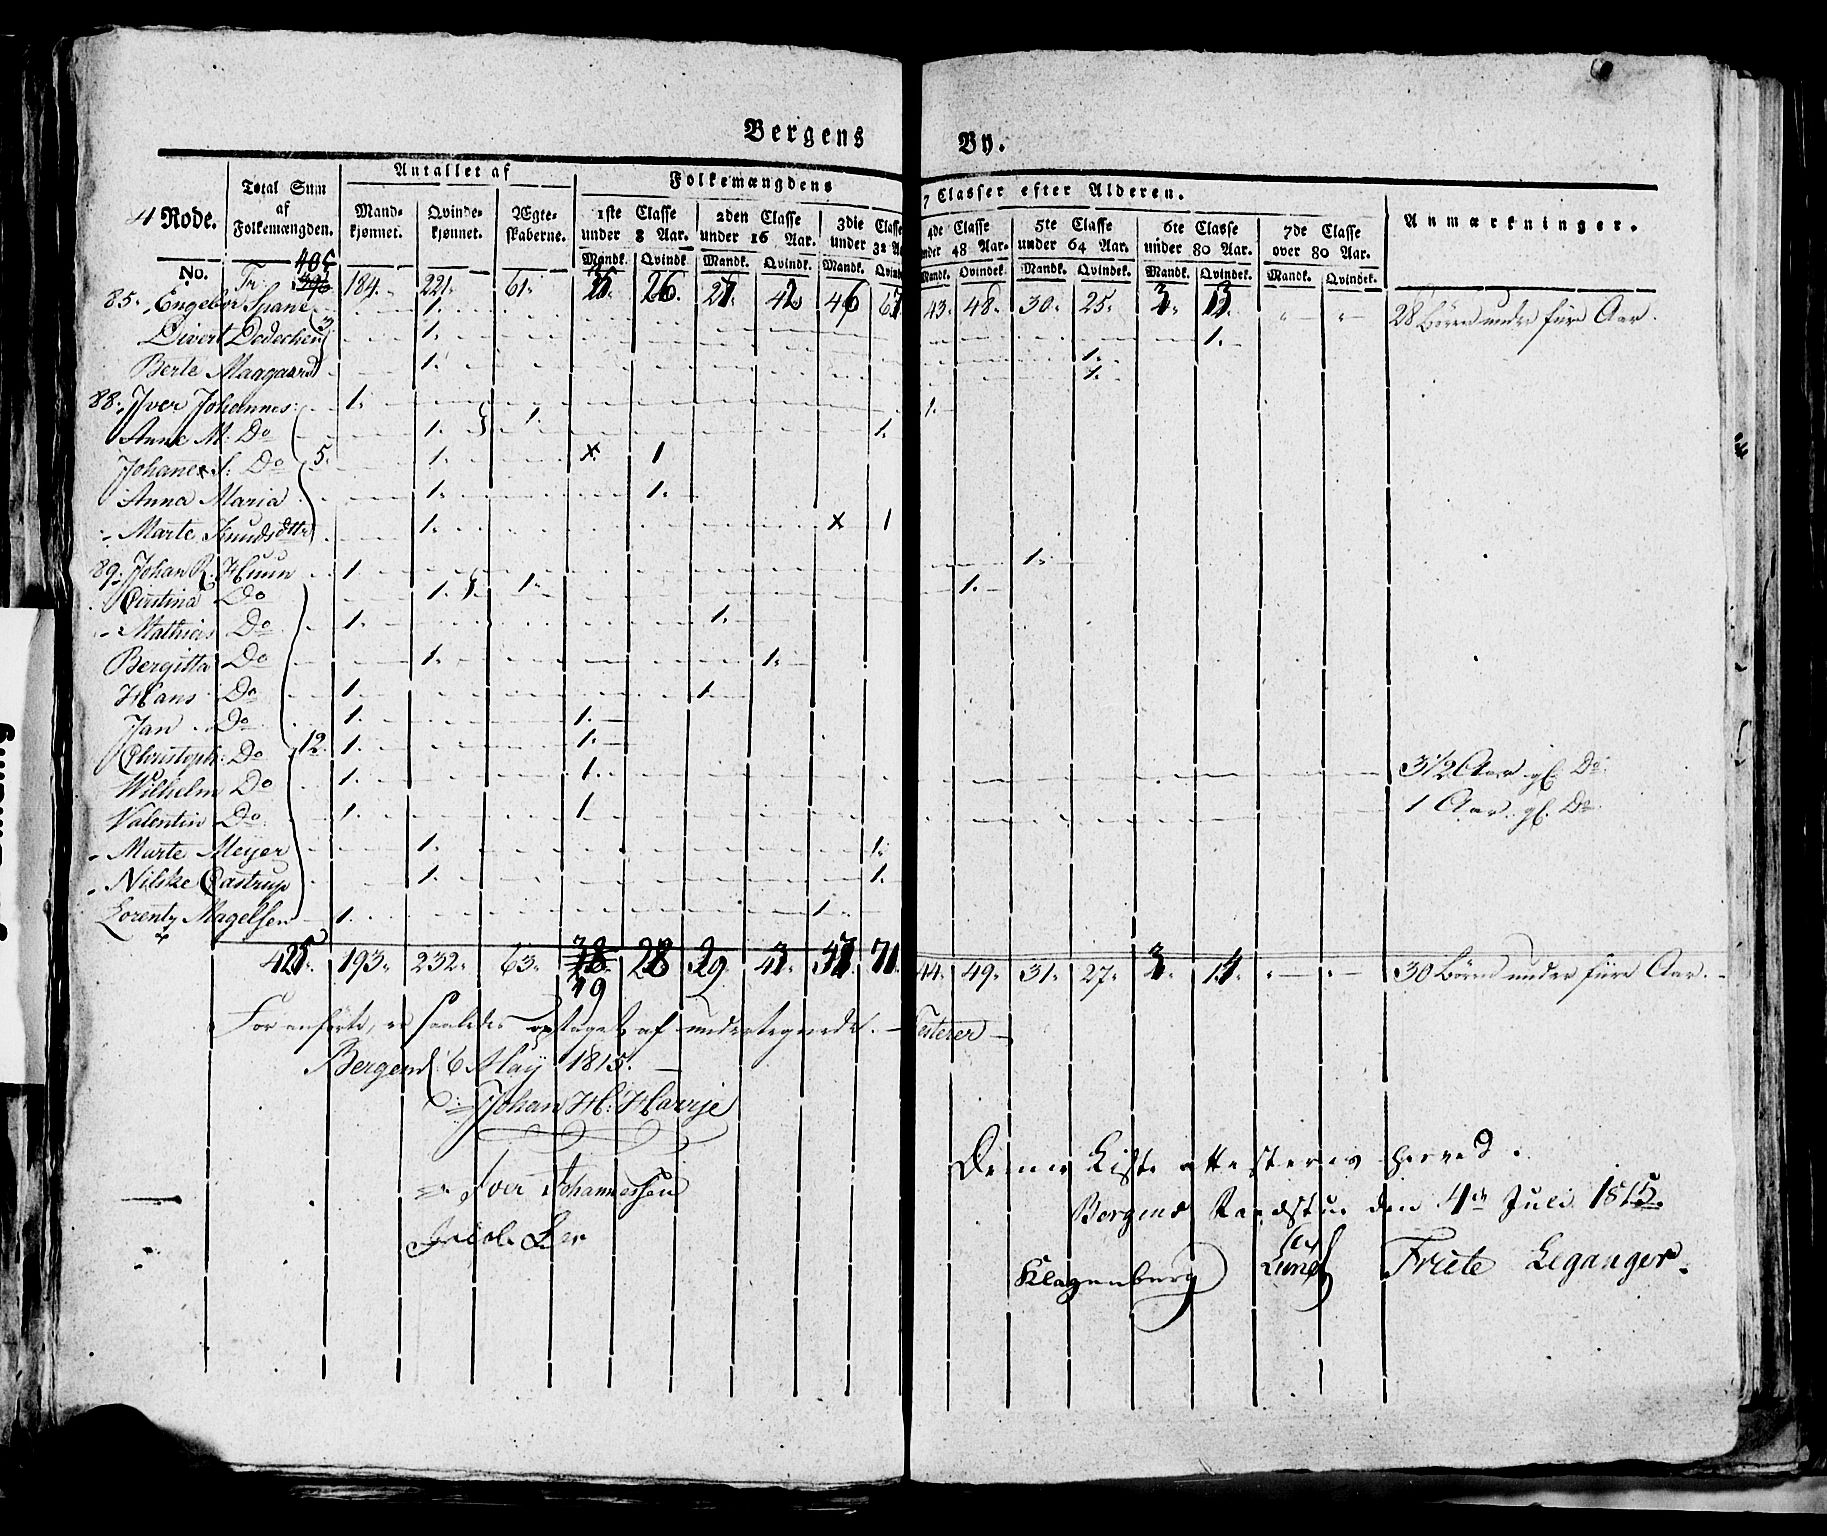 Bergens By.
4 Rode. Total Sum af Folkemængden. Antallet af Folkemængdens 7 Classer efter Alderen. Anmærkninger.
Mand-kjønnet. Qvinde-kjønnet. Ægte-skaberne. 1ste Classe under 8 Aar. 2den Classe under 16 Aar. 3die Classe under 32 Aar 4de Classe under 48 Aar. 5te Classe under 64 Aar. 6te Classe under 80 Aar. 7de Classe over 80 Aar.
Mandk. Qvindk. Mandk. Qvindk. Mandk. Qvindk. Mandk. Qvindek. Mandk. Qvindek. Mandk. Qvindek. Mandk. Qvindek.
No. Tr: 405 184. 221. 61. 26. 42 46 43. 48. 30. 25. 13. 28 Børn under fire Aar.
85. Engebor Spane 1. 1.
Divert Dedechen 3 1. 1.
Berte Maagaard 1. 1.
88. Iver Johannes: 1. 1.
Anne M: Do 1. 1. 1.
Johane S: Do 5. 1. x 1
Anna Maria 1. 1.
Marte Knudsdtter 1. x 1
89. Johan R. Huun 1. 1.
Cirstina Do 1. 1. 1.
Mathias Do 1. 1.
Bergitta Do 1. 1.
Hans Do 1. 1.
Jan Do 1. 1.
Christoph: Do 12. 1. 1.
Wilhelm Do 1. 1. 3 1/2 Aar gl. Do.
Valentin Do. 1. 1 1 Aar. gl. Do
Marte Meyer 1. 1.
Nilske Castrup 1. 1.
Lorentz Magelsen 1. 1.
425. 193. 232. 63. 28 29. 71. 44. 49. 31. 27. 14. 30 Børn under fire Aar.
49
For anførte, er saaledes optaget af undertegnede. Testerer
Bergen d. 6 May 1815.
Johan H: Harrje
Iver Johannessen
Jacob
Denne Liste attesteres herved.
Bergens Raadstue den 4de Juli 1815.
Klagenberg Lund Friele Leganger.